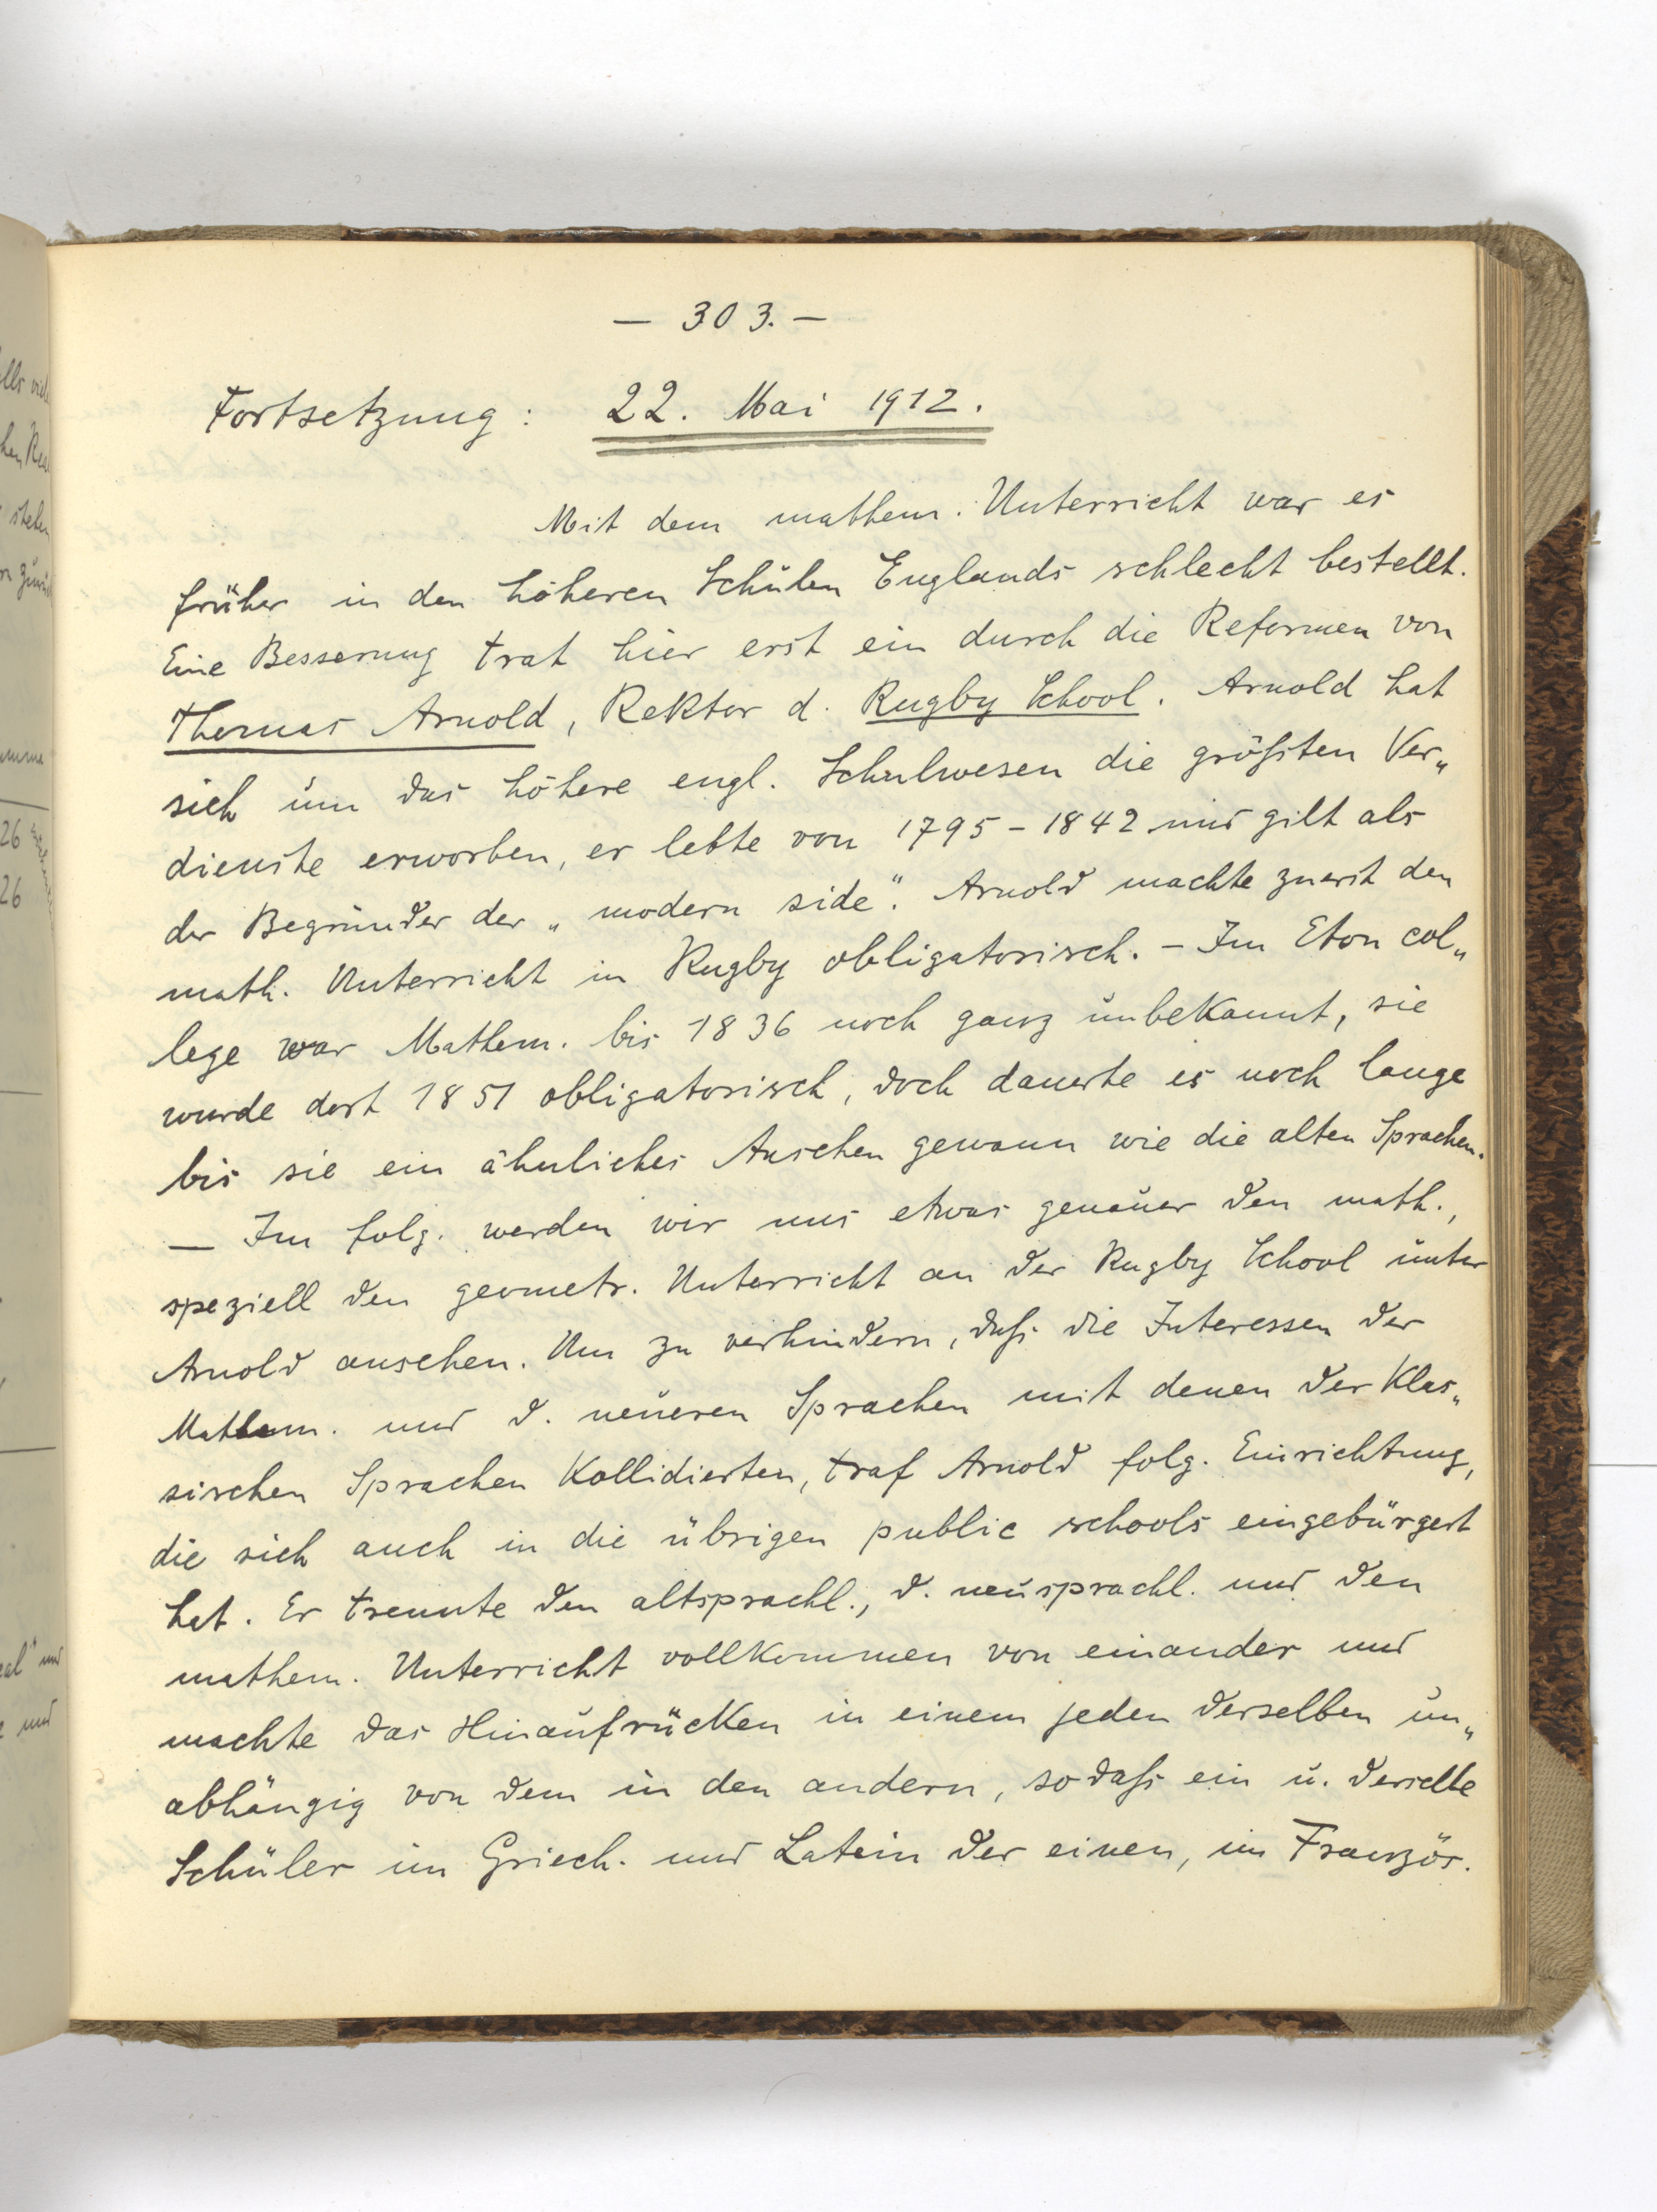 — 303. —
Fortsetzung: 22. Mai 1912.
Mit dem mathem. Unterricht war es
früher in den höheren Schulen Englands schlecht bestellt.
Eine Besserung trat hier erst ein durch die Reformen von
Thomas Arnold, Rektor d. Rugby School. Arnold hat
sich um das höhere engl. Schulwesen die größten Ver„
dienste erworben, er lebte von 1795 - 1842 und gilt als
der Begründer der „modern side“. Arnold machte zuerst den
math. Unterricht in Rugby obligatorisch. - Im Eton col„
lege war Mathem. bis 1836 noch ganz unbekannt, sie
wurde dort 1851 obligatorisch, doch dauerte es noch lange
bis sie ein ähnliches Ansehen gewann wie die alten Sprachen.
— Im folg. werden wir uns etwas genauer den math.,
speziell den geometr. Unterricht an der Rugby School unter
Arnold ansehen. Um zu verhindern, daß die Interessen der
Mathem. und d. neueren Sprachen mit denen der Klas„
sischen Sprachen Kollidierten, traf Arnold folg. Einrichtung,
die sich auch in die übrigen public schools eingebürgert
hat. Er trennte den altsprachl., d. neusprachl. und den
mathem. Unterricht vollkommen von einander und
machte das Hinaufrücken in einem jeden derselben un„
abhängig von dem in den andern, sodaß ein u. derselbe
Schüler im Griech. und Latein der einen, im Französ.
26
26
und